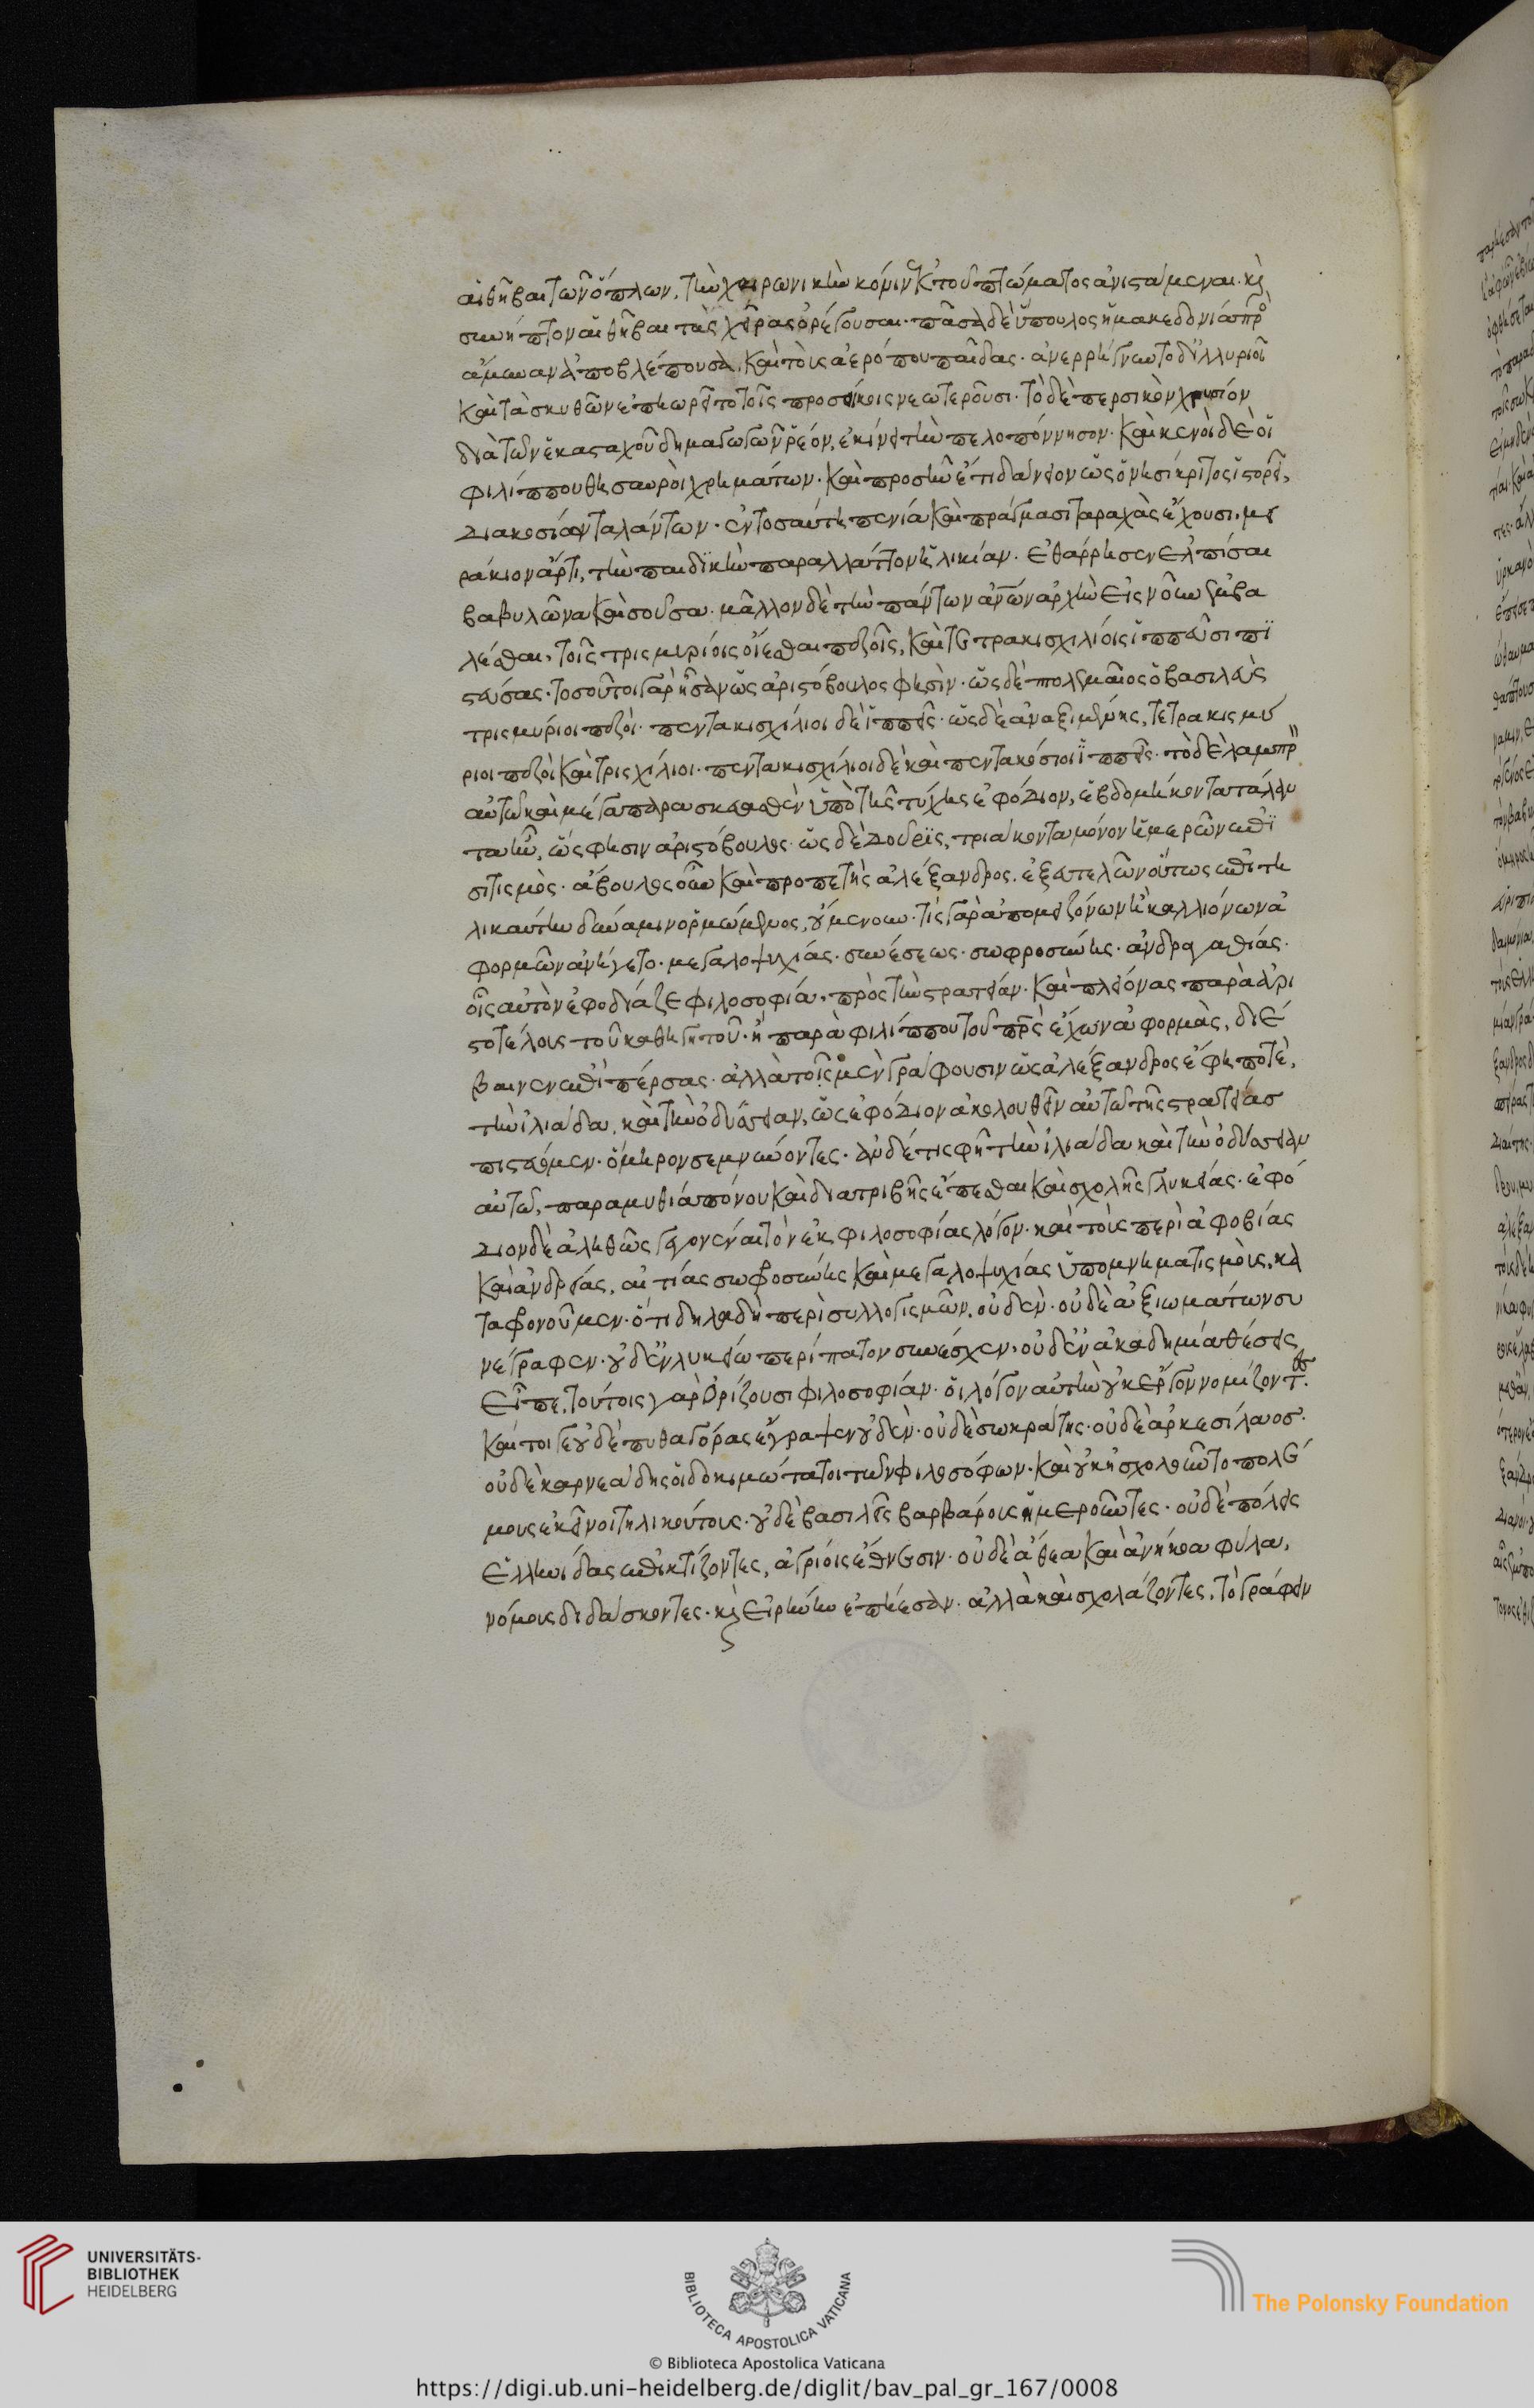 αἱ θῆβαι τῶν ὅπλων, τὴν χαιρωνικὴν κόνιν ἐκ τοῦ πτώματος ἀνιστάμεναι. κ
συνῆπτον αἱ θῆβαι τὰς χεῖρας ὀρέγουσαι. πᾶσα δὲ ὕπουλος ἡ μακεδονία πρ
ἀμύναν ἀποβλέπουσα, καὶ τοὺς ἀερόπου παῖδας. ἀνερρήγνυντο δ' ἰλλυριοὶ
καὶ τὰ σκυθῶν ἐπηωρεῖτο τοῖς προσοίκοις νεωτεροῦσι. τὸ δὲ περσικὸν χρυσίον
διὰ τῶν ἑκασταχοῦ δημαγωγῶν ῥέον, ἐκίνει τὴν πελοπόννησον. καὶ κενοὶ δὲ οἱ
φιλίππου θησαυροὶ χρημάτων. καὶ προσῆν ἔτι δάνειον ὡς ὀνησίκριτος ἱστορεῖ,
διακοσίων ταλάντων. ἐν τοσαύτη πενία καὶ πράγμασι ταραχὰς ἔχουσι, μει
ράκιον ἄρτι, τὴν παιδϊκὴν παραλλάττον ἡλικίαν. ἐθάρρησεν ἐλπίσαι
βαβυλῶνα καὶ σοῦσα. μᾶλλον δὲ τὴν πάντων ἀνων ἀρχὴν εἰς νοῦν ἐμβα
λέσθαι, τοῖς τρισμυρίοις οἴεσθαι πεζοῖς, καὶ τετρακισχιλίοις ἱππεῦσι πϊ
στεύσας. τοσοῦτοι γὰρ ἦσαν ὡς ἀριστόβουλος φησὶν. ὡς δὲ πτολεμαῖος ὁ βασιλεὺς
τρισμύριοι πεζοὶ. πεντακισχίλιοι δὲ ἱππεῖς. ὡς δὲ ἀναξιμένης, τετρακισμύ
ριοι πεζοὶ καὶ τρισχίλιοι. πεντακισχίλιοι δὲ καὶ πεντακόσιοι ἱππεῖς. τὸ δὲ λαμπρ
αὐτῶ καὶ μέγα παρασκευασθὲν ὑπὸ τῆς τύχης ἐφόδιον, ἑβδομήκοντα τάλαν
τα ἦν, ὥς φησιν ἀριστόβουλος. ὡς δὲ δοῦρϊς, τριάκοντα μόνον ἡμερῶν ἐπϊ
σιτισμὸς. ἄβουλος οὖν καὶ προπετὴς ἀλέξανδρος. ἐξ εὐτελῶν οὕτως ἐπὶ τη
λικαύτην δύναμιν ὁρμώμενος, οὐμενουν. τίς γὰρ ἀπὸ μειζόνων ἢ καλλιόνων ἀ
φορμῶν ἀνήγετο. μεγαλοψυχίας. συνέσεως. σωφροσύνης. ἀνδραγαθίας.
οἷς αὐτὸν ἐφοδίαζε φιλοσοφία. πρὸς τὴν στρατείαν. καὶ πλείονας παρὰ ἀρι
στοτέλους τοῦ καθηγητοῦ. ἢ παρὰ φιλίππου τοῦ πρς ἔχων ἀφορμὰς, διέ
βαινεν ἐπὶ πέρσας. ἀλλὰ τοῖς μὲν γράφουσιν ὡς ἀλέξανδρος ἔφη ποτὲ,
τὴν ἰλιάδα, καὶ τὴν ὀδύσσειαν, ὡς ἐφόδιον ἀκολουθεῖν αὐτῶ τῆς στρατείας
πιστεύομεν. ὅμηρον σεμνύνοντες. ἂν δέ τις φῆ τὴν ἰλιάδα καὶ τὴν ὀδύσσειαν
αὐτῶ, παραμυθία πόνου καὶ διατριβῆς ἕπεσθαι καὶ σχολῆς γλυκείας. ἐφό
διον δὲ ἀληθῶς γεγονέναι τὸν ἐκ φιλοσοφίας λόγον. καὶ τοὺς περὶ ἀφοβίας
καὶ ἀνδρείας, αὐτίας σωφροσύνης καὶ μεγαλοψυχίας ὑπομνηματισμοὺς. κα
ταφρονοῦμεν. ὅτι δηλαδὴ περὶ συλλογισμῶν, οὐδὲν. οὐδὲ ἀξιωμάτων συ
νέγραφεν. οὐδ' ἐν λυκείω περίπατον συνέσχεν. οὐδ' ἐν ἀκαδημία θέσεις
εἶπε. τούτοις γὰρ ὁρίζουσι φιλοσοφίαν. οἱ λόγον αὐτὴν οὐκ ἔργον νομίζοντ.
καίτοι γε οὐδὲ πυθαγόρας ἔγραψεν οὐδὲν. οὐδὲ σωκράτης. οὐδὲ ἀρκεσίλαος.
οὐδὲ καρνεάδης οἱ δοκιμώτατοι τῶν φιλοσόφων. καὶ οὐκ ἠσχολοῦντο πολέ
μους ἐκεῖνοι τηλικούτους. οὐδὲ βασιλεῖς βαρβάρους ἡμεροῦντες. οὐδὲ πόλεις
ἑλληνίδας ἐπικτίζοντες, ἀγρίοις ἔθνεσιν. οὐδὲ ἄθεα καὶ ἀνήκοα φῦλα,
νόμους διδάσκοντες. καὶ εἰρήνην ἐπήεσαν. ἀλλὰ καὶ σχολάζοντες, τὸ γράφειν
UNIVERSITÄTS-
BIBLIOTHEK
HEIDELBERG
BIBLIOTECA APOSTOLICA VATICANA
The Polonsky Foundation
© Biblioteca Apostolica Vaticana
https://digi.ub.uni-heidelberg.de/diglit/bav_pal_gr_167/0008